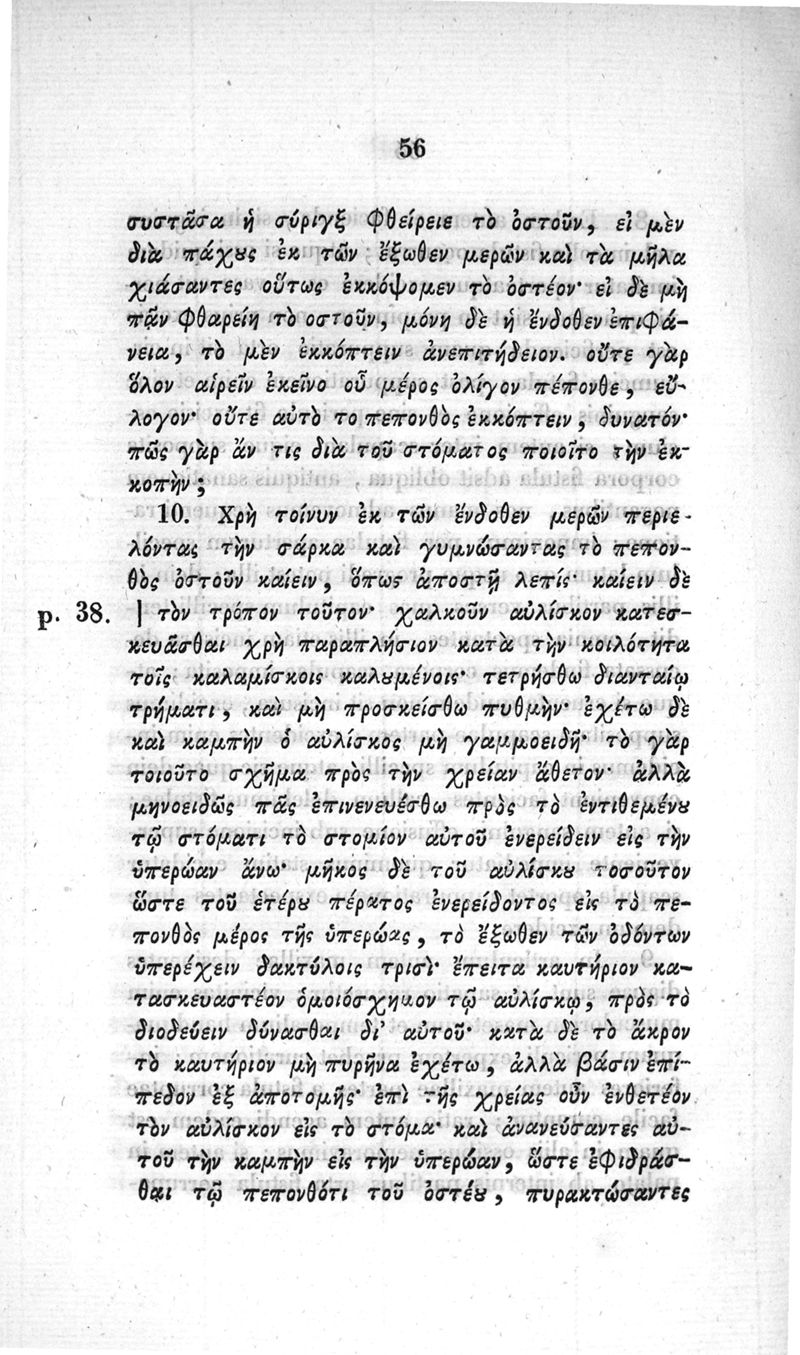 56
συστᾶσα ἡ σύριγξ φθείρειε τὸ ὀστοῦν, εἰ μὲν
διὰ πάχȣς ἐκ τῶν ἔξωθεν μερῶν καὶ τὰ μῆλα
χιάσαντες οὕτως ἐκκόψομεν τὸ ὀστέον· εἰ δὲ μὴ
πᾶν φθαρείη τὸ οστοῦν, μόνη δὲ ἡ ἔνδοθεν ἐπιφά-
νεια, τὸ μὲν ἐκκόπτειν ἀνεπιτήδειον. οὔτε γὰρ
ὅλον αἱρεῖν ἐκεῖνο οὗ μέρος ὀλίγον πέπονθε, εὔ-
λογον· οὔτε αὐτὸ το πεπονθὸς ἐκκόπτειν, δυνατόν·
πῶς γὰρ ἄν τις διὰ τοῦ στόματος ποιοῖτο τὴν ἐκ-
κοπὴν;
10. Χρὴ τοίνυν ἐκ τῶν ἔνδοθεν μερῶν περιε-
λόντας τὴν σάρκα καὶ γυμνώσαντας τὸ πεπον-
θὸς ὀστοῦν καίειν, ὅπως ἀποστῇ λεπίς· καίειν δὲ
p. 38. | τὸν τρόπον τοῦτον· χαλκοῦν αὐλίσκον κατεσ-
κευᾶσθαι χρὴ παραπλήσιον κατὰ τὴν κοιλότητα
τοῖς καλαμίσκοις καλȣμένοις· τετρήσθω διανταίῳ
τρήματι, καὶ μὴ προσκείσθω πυθμὴν· ἐχέτω δὲ
καὶ καμπὴν ὁ αὐλίσκος μὴ γαμμοειδῆ· τὸ γὰρ
τοιοῦτο σχῆμα πρὸς τὴν χρείαν ἄθετον· ἀλλὰ
μηνοειδῶς πᾶς ἐπινενευέσθω πρὸς τὸ ἐντιθεμένȣ
τῷ στόματι τὸ στομίον αὐτοῦ ἐνερείδειν εἰς τὴν
ὑπερώαν ἄνω· μῆκος δὲ τοῦ αὐλίσκȣ τοσοῦτον
ὥστε τοῦ ἑτέρȣ πέρατος ἐνερείδοντος εἰς τὸ πε-
πονθὸς μέρος τῆς ὑπερώας, τὸ ἔξωθεν τῶν ὀδόντων
ὑπερέχειν δακτύλοις τρισὶ· ἔπειτα καυτήριον κα-
τασκευαστέον ὁμοιόσχημον τῷ αὐλίσκῳ, πρὸς τὸ
διοδεύειν δύνασθαι δι’ αὐτοῦ· κατὰ δὲ τὸ ἄκρον
τὸ καυτήριον μὴ πυρῆνα ἐχέτω, ἀλλὰ βάσιν ἐπί-
πεδον ἐξ ἀποτομῆς· ἐπὶ τῆς χρείας οὖν ἐνθετέον
τὸν αὐλίσκον εἰς τὸ στόμα· καὶ ἀνανεύσαντες αὐ-
τοῦ τὴν καμπὴν εἰς τὴν ὑπερώαν, ὥστε ἐφιδράσ-
θαι τῷ πεπονθότι τοῦ ὀστέȣ, πυρακτώσαντες